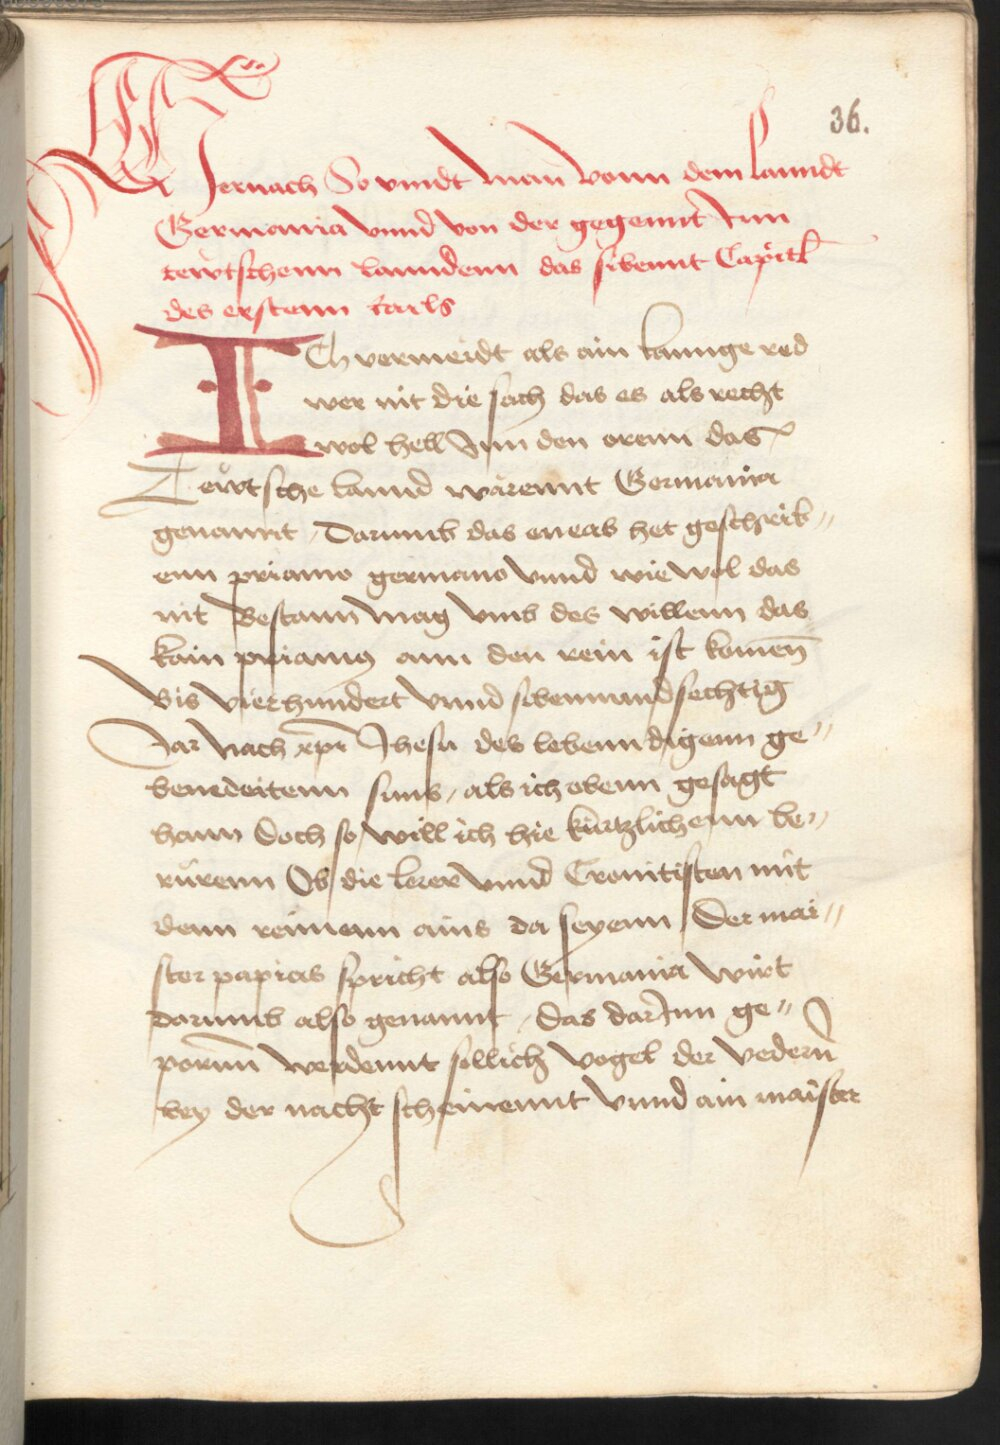 36.
Hiernach So vindt man vonn dem lanndt
Germania vnnd von der gegennt Inn
tewtschenn lanndenn das sibennt Capitl
des erstenn tails
ICh vermeidt als ain lannge red
wer nit die sach das es als recht
wol hell Inn den orenn das
Tewtsche lannd warennt Germania
genannt / Darumb das eneas het geschrib〃
enn priamo germano vnnd wie wol das
nit Bestann mag vmb des willenn das
kain priamus ann den rein ist komen̄
Bis vierhundert vnnd sibennundsechtzig
Jar nach xp̄i Jhesu des lebenndigenn ge〃
benedeitenn suns / als ich obenn gesagt
hann Doch so will ich hie kürtzlichenn be〃
rürenn Ob die lerer vnnd Cronitisten mit
denn reimenn ains da seyenn / Der mai〃
ster papias spricht also Germania würt
darumb also genannt / das darInn ge〃
pornn̄ werdennt sollich vogel der vedern̄
bey der nacht scheinennt vnnd ain maister